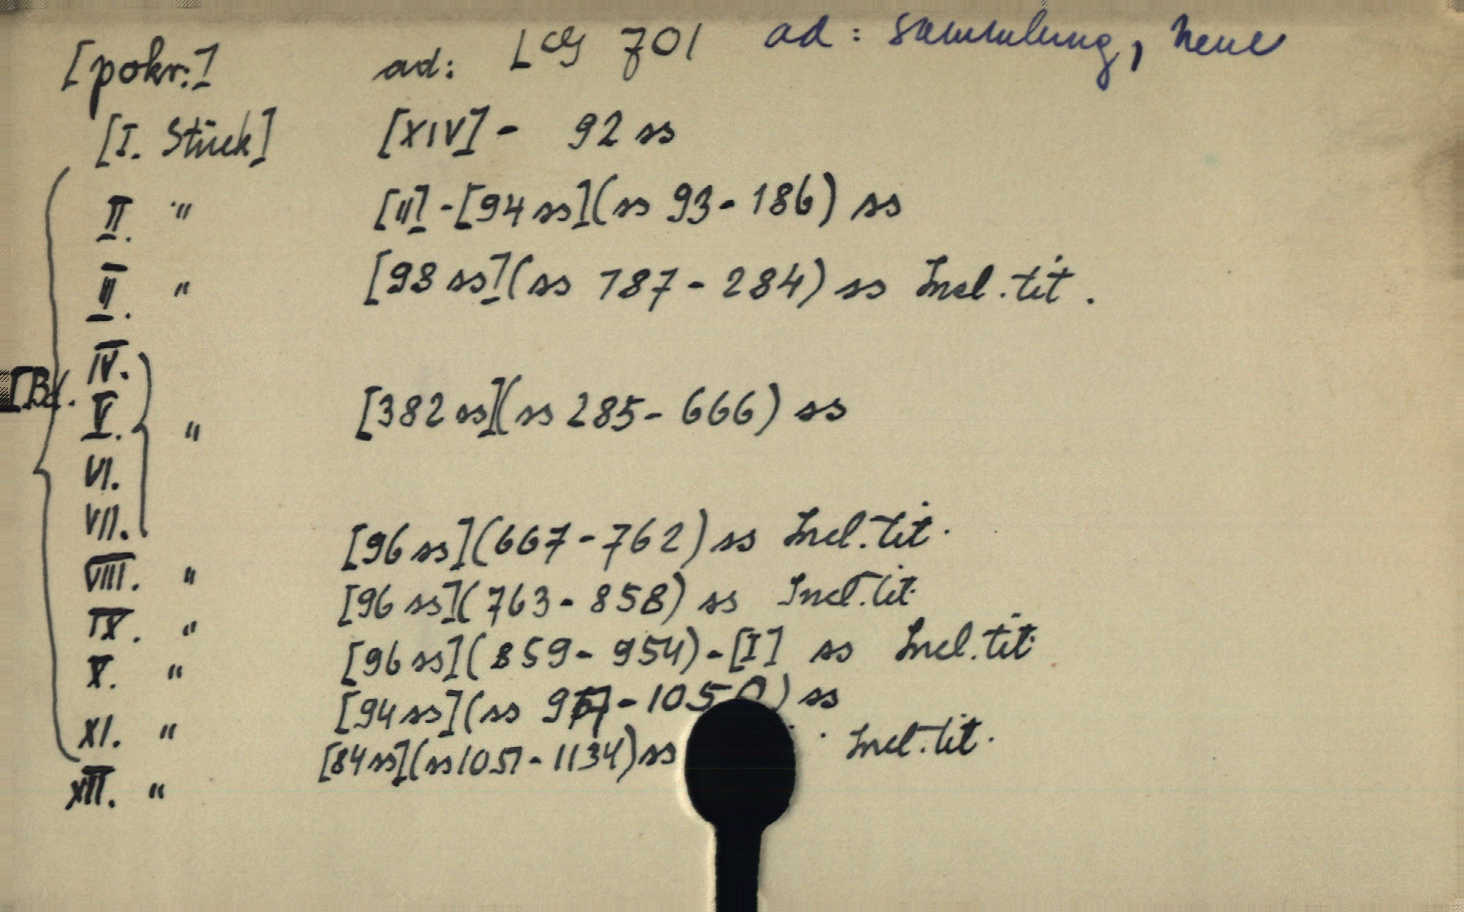 [pokr.] ad: LCG 701 ad: Sammlung, Neue
[I. Stück] [XIV] - 92 ss
II. " [II] - [94 ss] (ss 93 - 186) ss
III. " [98 ss] (ss 187 - 284) ss Incl. tit.
IV.
[Bd. V. " [382 ss] (ss 285 - 666) ss
VI.
VII.
VIII. " [96 ss] (667 - 762) ss Incl. tit.
IX. " [96 ss] (763 - 858) ss Incl. tit.
X. " [96 ss] (859 - 954) - [I] ss Incl. tit.
XI. " [94 ss] (ss 957 - 1050) ss
XII. " [84 ss] (ss 1051 - 1134) ss Incl. tit.